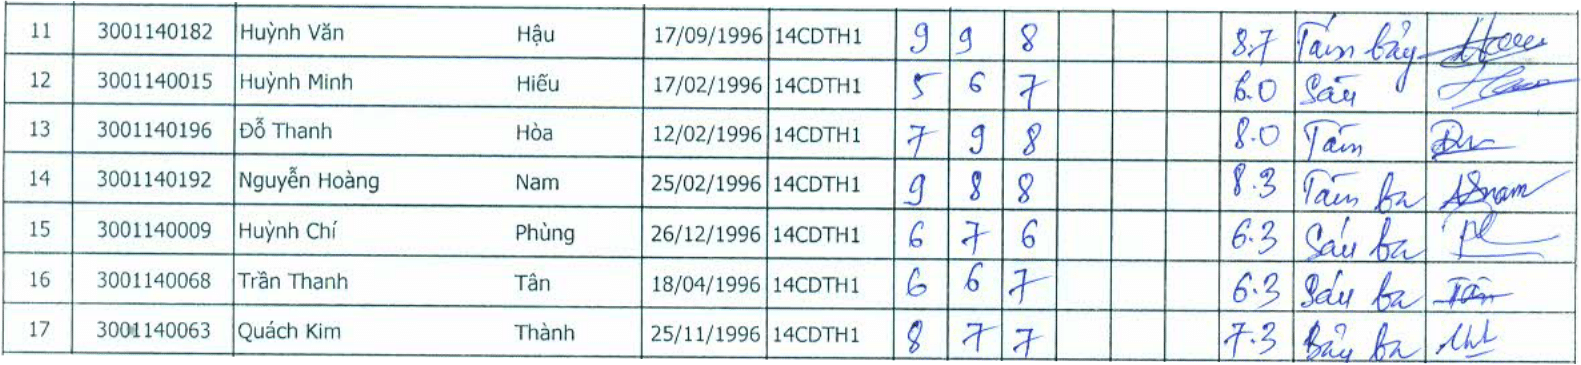 11 3001140182 Huỳnh Văn Hậu 17/09/1996 14CDTH1 9 9 8 8.7 Tám bảy
12 3001140015 Huỳnh Minh Hiếu 17/02/1996 14CDTH1 5 6 7 6.0 Sáu
13 3001140196 Đỗ Thanh Hòa 12/02/1996 14CDTH1 7 9 8 8.0 Tám
14 3001140192 Nguyễn Hoàng Nam 25/02/1996 14CDTH1 9 8 8 8.3 Tám ba Nam
15 3001140009 Huỳnh Chí Phùng 26/12/1996 14CDTH1 6 7 6 6.3 Sáu ba
16 3001140068 Trần Thanh Tân 18/04/1996 14CDTH1 6 6 7 6.3 Sáu ba Tân
17 3001140063 Quách Kim Thành 25/11/1996 14CDTH1 8 7 7 7.3 Bảy ba